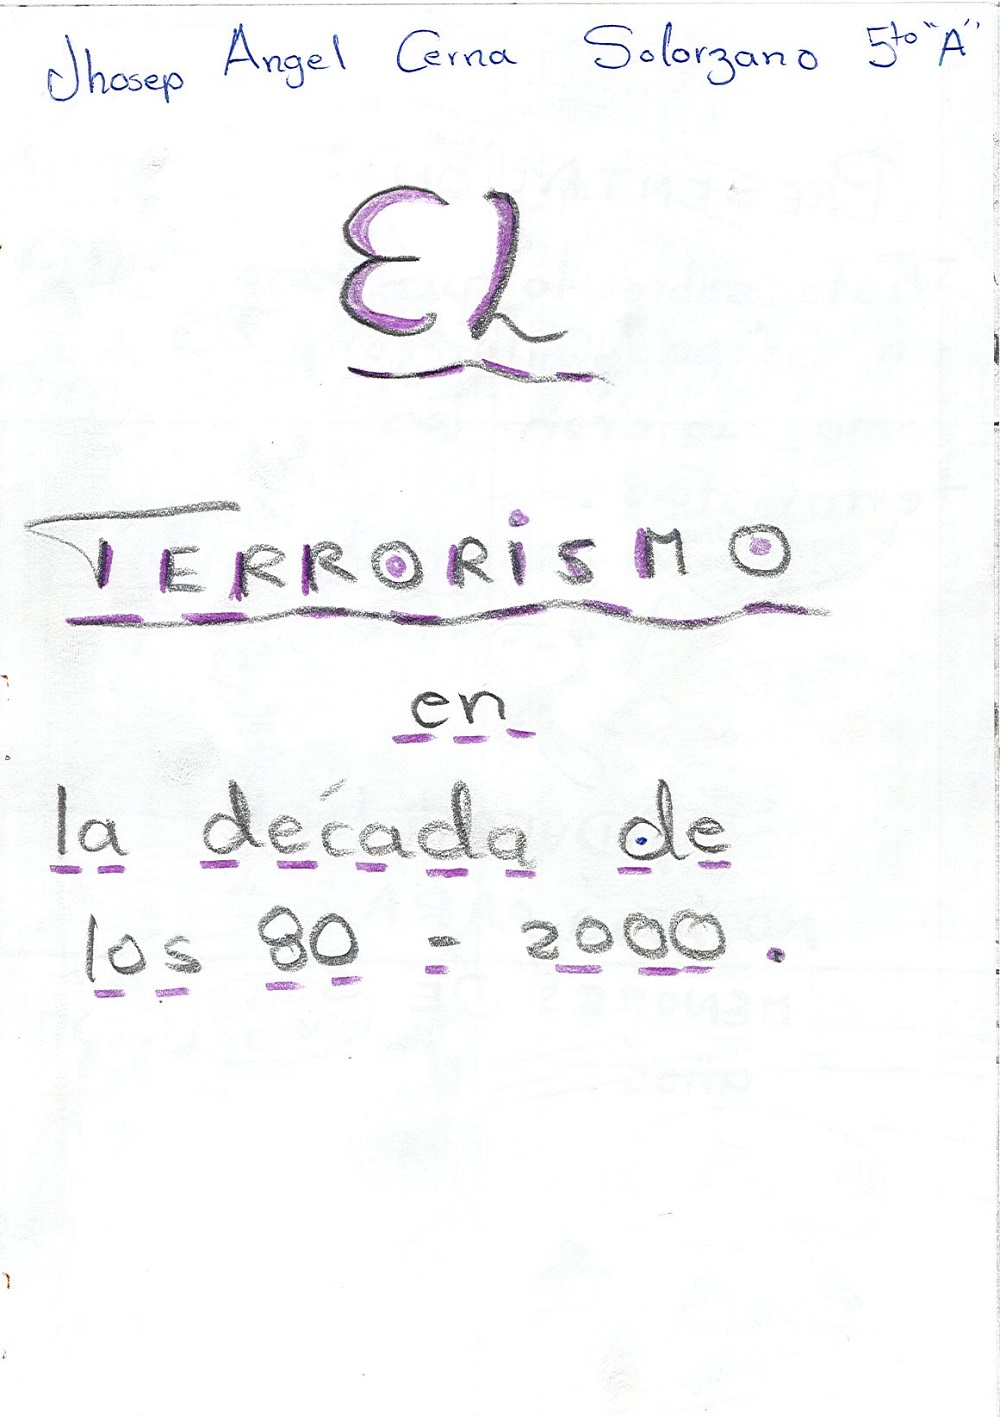 Jhosep Angel Cerna Solorzano 5to "A"
EL
TERRORiSMO
en
la década de
los 80 - 2000.